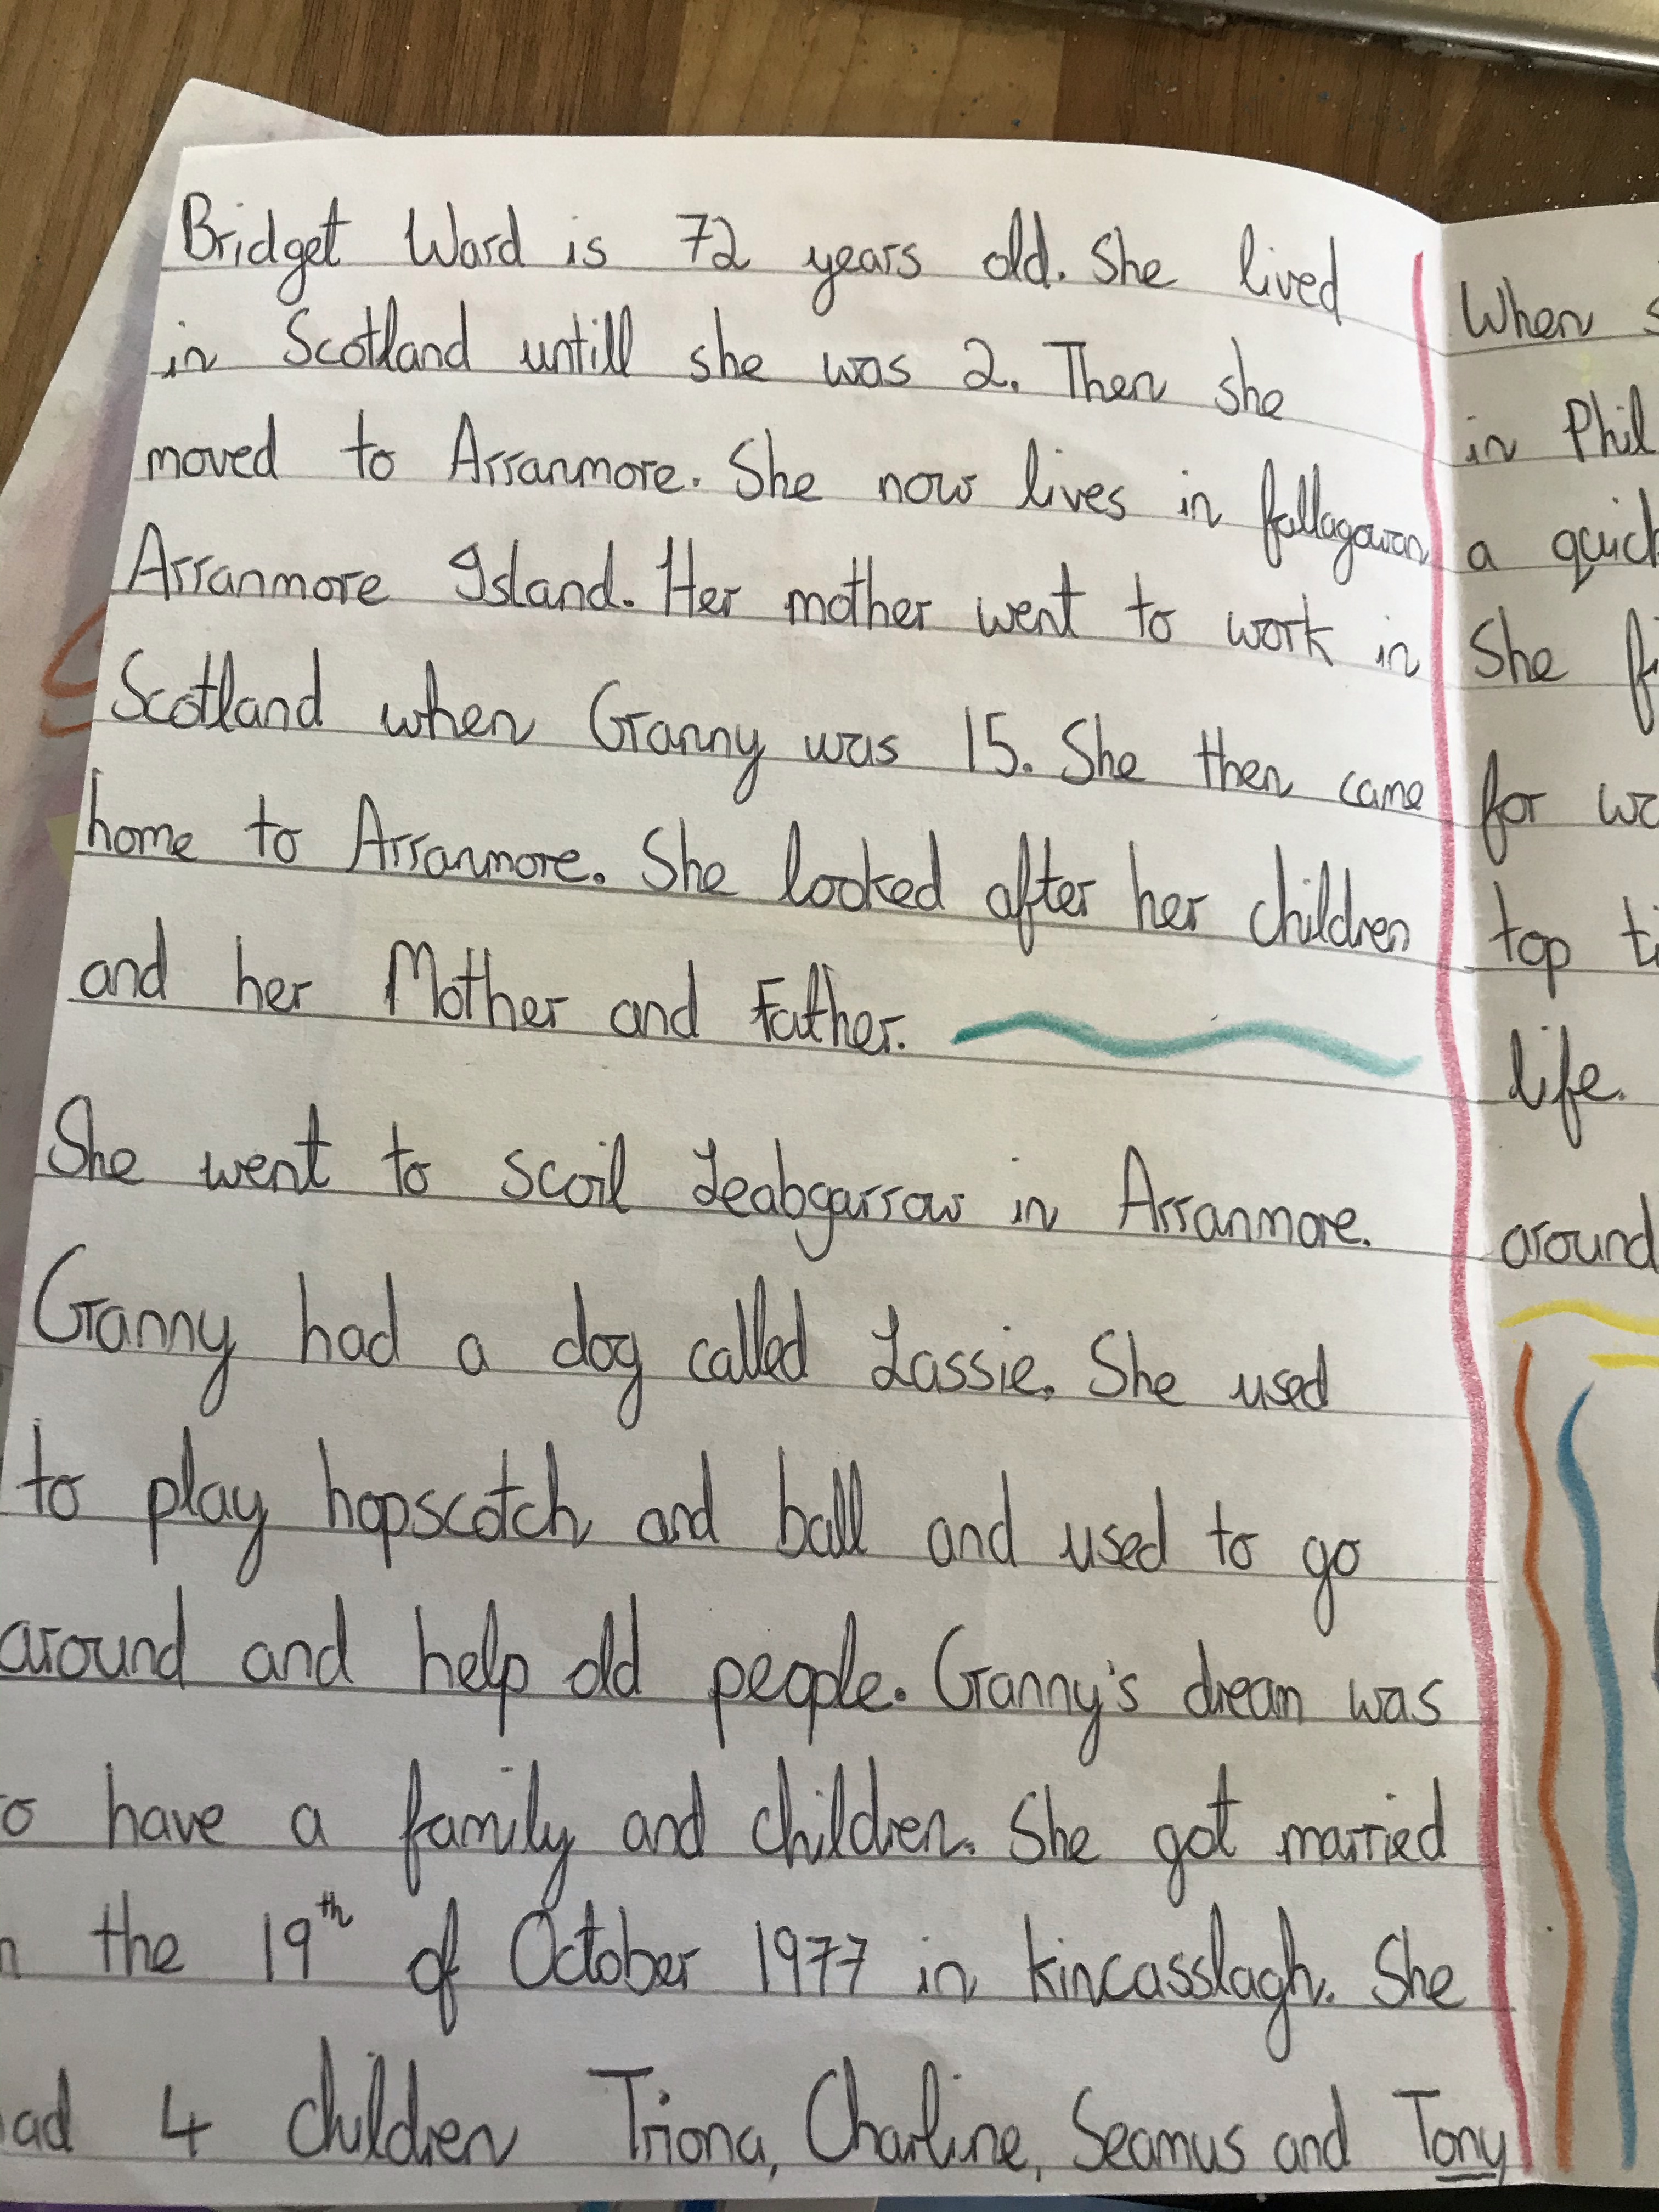 Bridget Ward is 72 years old. She lived
in Scotland untill she was 2. Then she
moved to Arranmore. She now lives in fallagowan
Arranmore Island. Her mother went to work in
Scotland when Granny was 15. She then came
home to Arranmore. She looked after her children
and her Mother and Father.
She went to scoil Leabgarrow in Arranmore.
Granny had a dog called Lassie. She used
to play hopscotch and ball and used to go
around and help old people. Granny's dream was
o have a family and children. She got married
n the 19th of October 1977 in kincasslagh. She
ad 4 children Triona, Charline, Seamus and Tony
When s
in Phil
a quick
She fi
for wo
top ti
life.
around